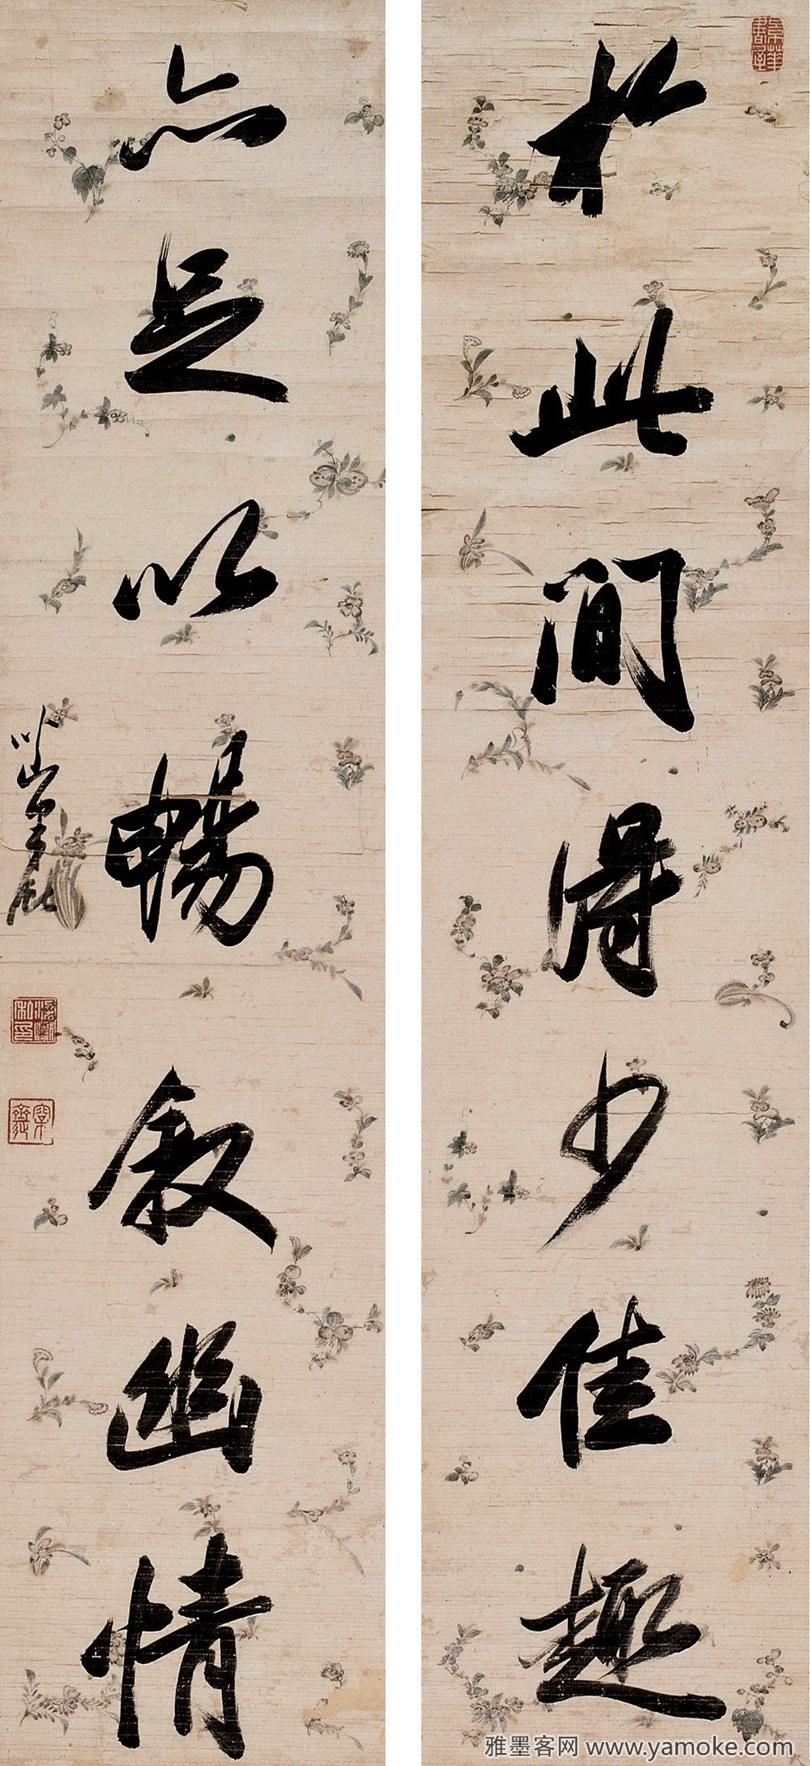 於此間得少佳趣
亦足以暢敘幽情
雅墨客网 www.yamoke.com